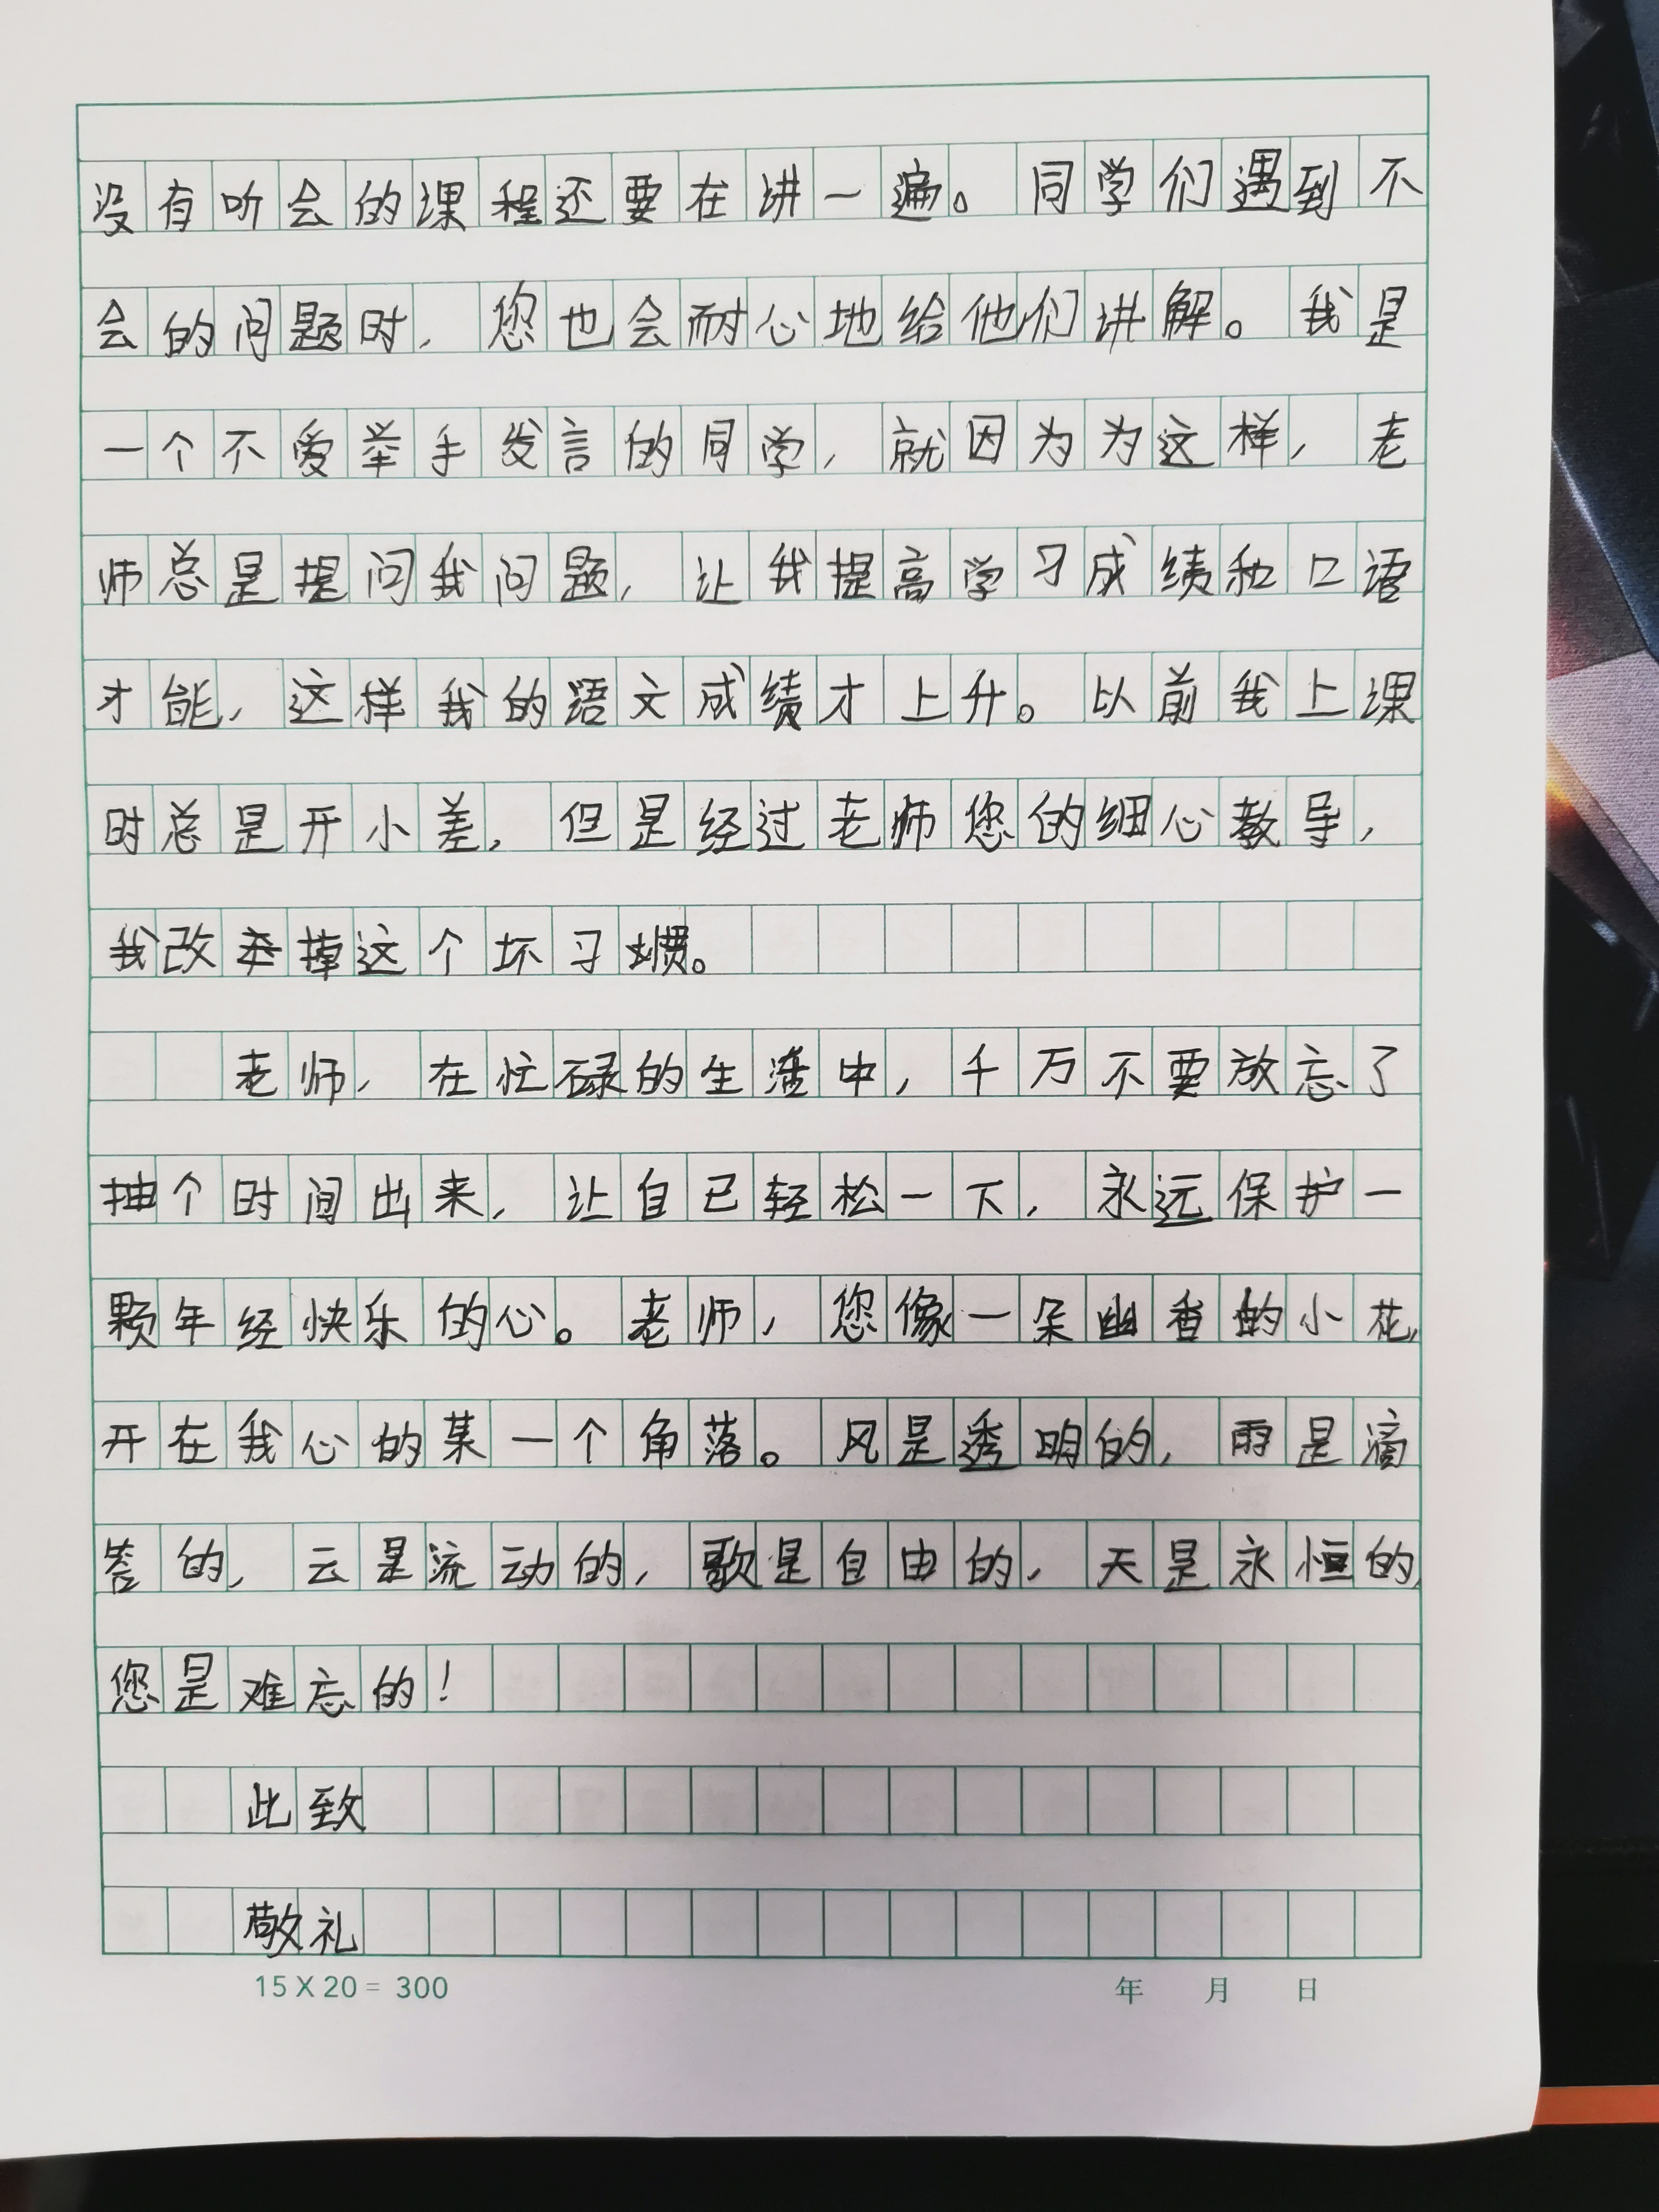 没有听会的课程还要在讲一遍。同学们遇到不
会的问题时，您也会耐心地给他们讲解。我是
一个不爱举手发言的同学，就因为为这样，老
师总是提问我问题，让我提高学习成绩和口语
才能，这样我的语文成绩才上升。以前我上课
时总是开小差，但是经过老师您的细心教导，
我改掉这个坏习惯。
老师，在忙碌的生活中，千万不要放忘了
抽个时间出来，让自己轻松一下，永远保护一
颗年经快乐的心。老师，您像一朵幽香的小花，
开在我心的某一个角落。风是透明的，雨是滴
答的，云是流动的，歌是自由的，天是永恒的，
您是难忘的！
此致
敬礼
15×20=300
年 月 日